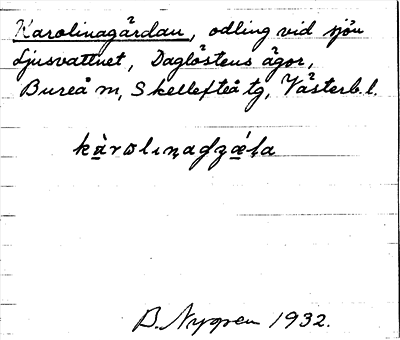 Karolinagårdan, odling vid sjön
Ljusvattnet, Daglöstens ägor,
Bureå m, Skellefteå tg, Västerb. l.
B. Nygren 1932.